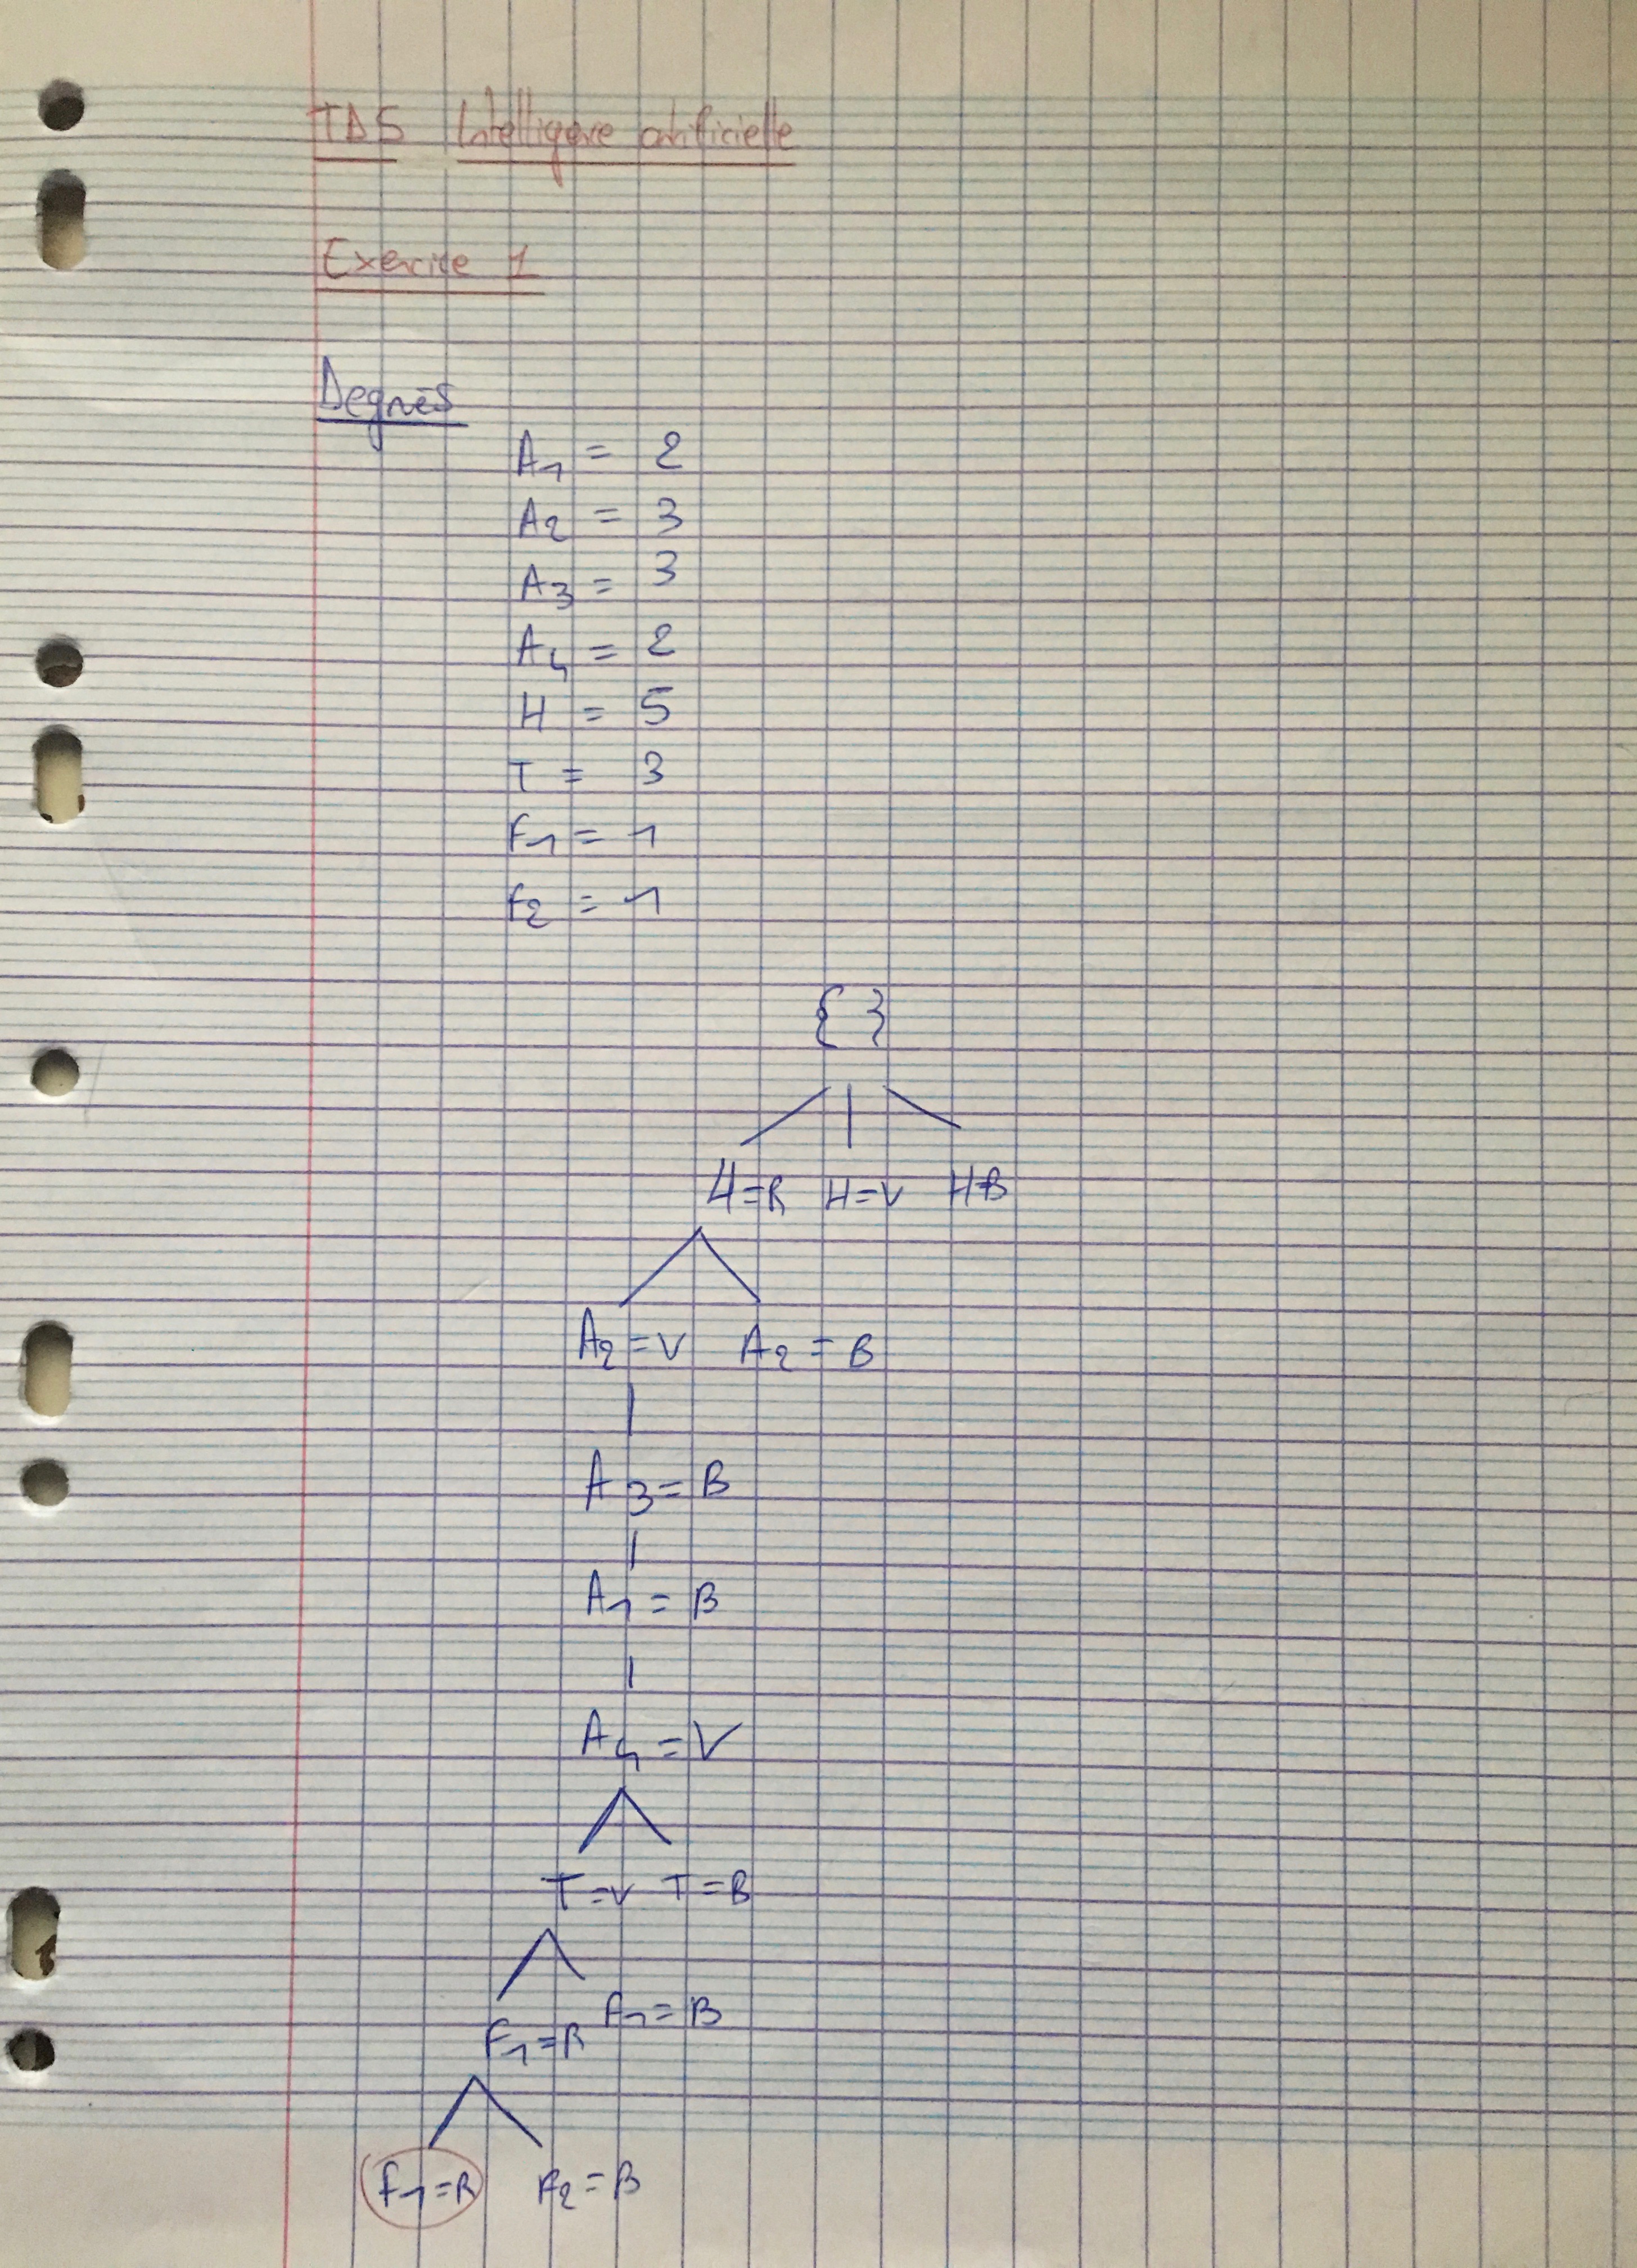 TD5 Intelligence artificielle
Exercice 1
Degrés
A1 = 2
A2 = 3
A3 = 3
A4 = 2
H = 5
T = 3
F1 = 1
F2 = 1
{ }
H=R H=V H=B
A2=V A2=B
A3=B
A1=B
A4=V
T=V T=B
F1=R F1=B
F1=R F2=B